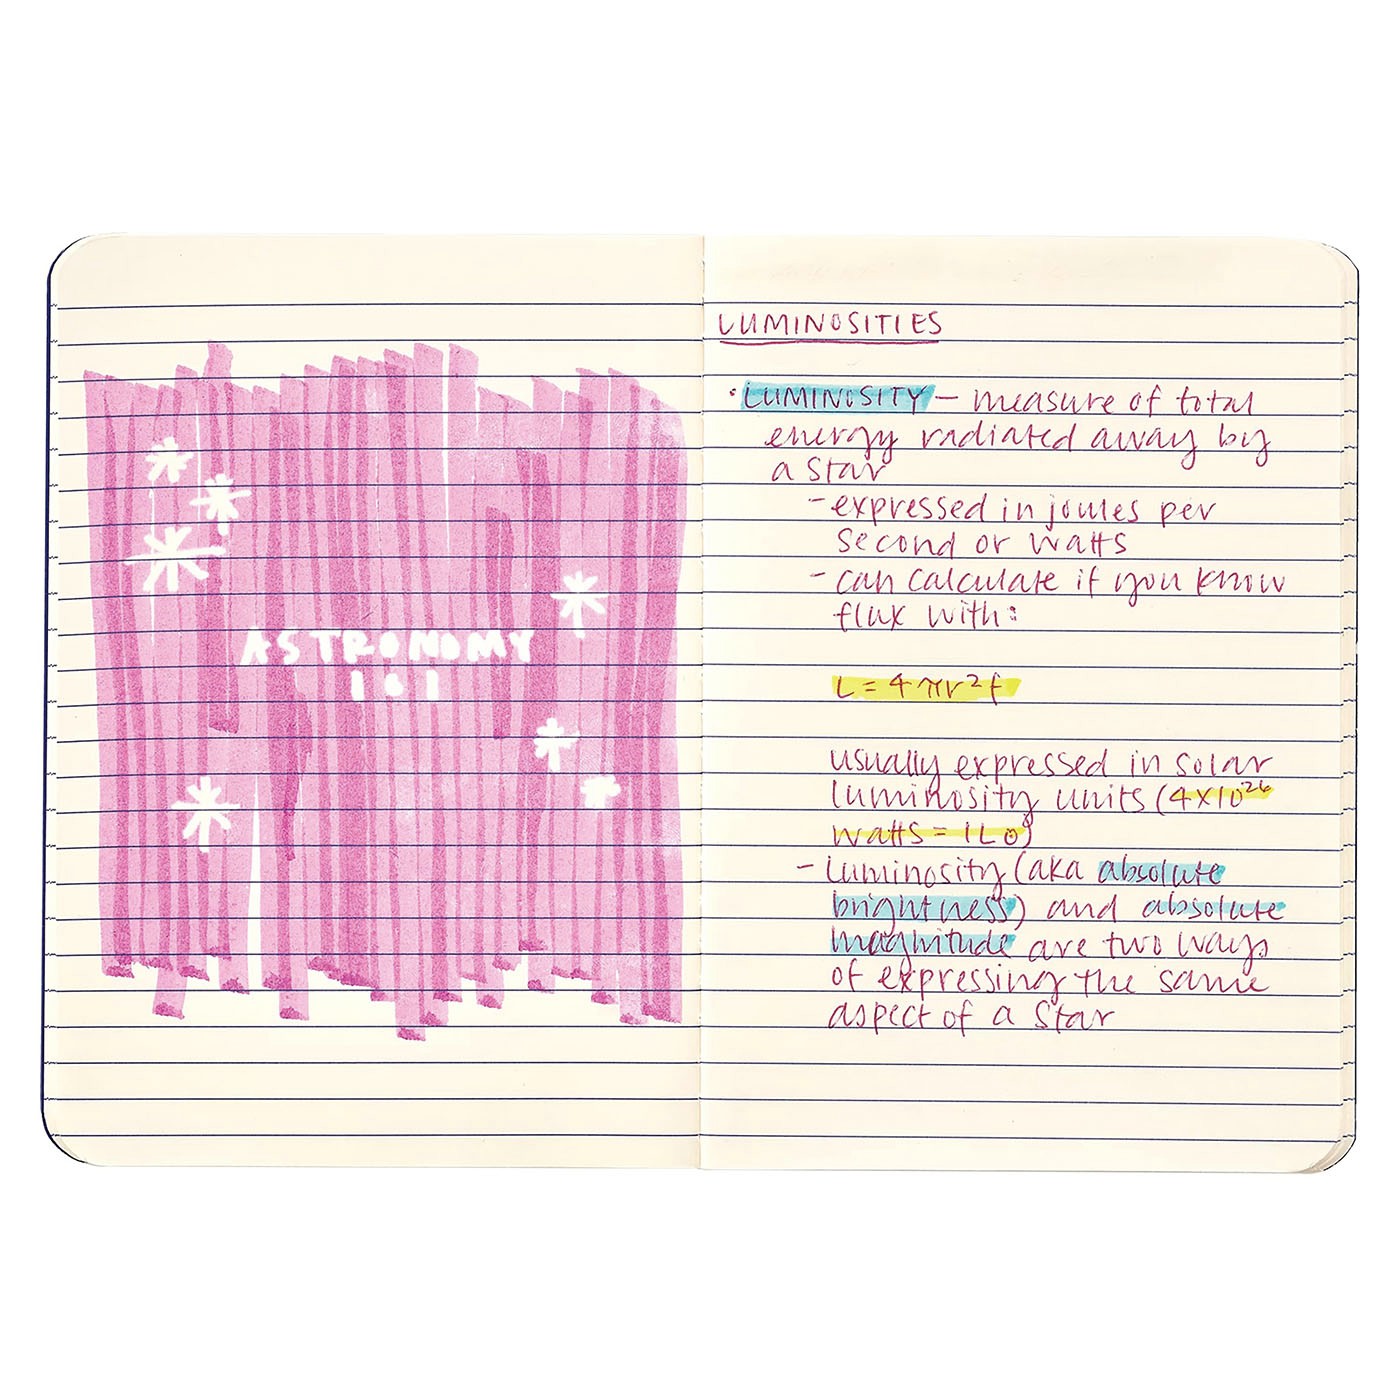 ASTRONOMY
101
LUMINOSITIES
• LUMINOSITY – measure of total
energy radiated away by
a star
- expressed in joules per
second or watts
- can calculate if you know
flux with:
L = 4πr²f
usually expressed in solar
luminosity units (4x10²⁶
watts = 1L⊙)
- Luminosity (aka absolute
brightness) and absolute
magnitude are two ways
of expressing the same
aspect of a star